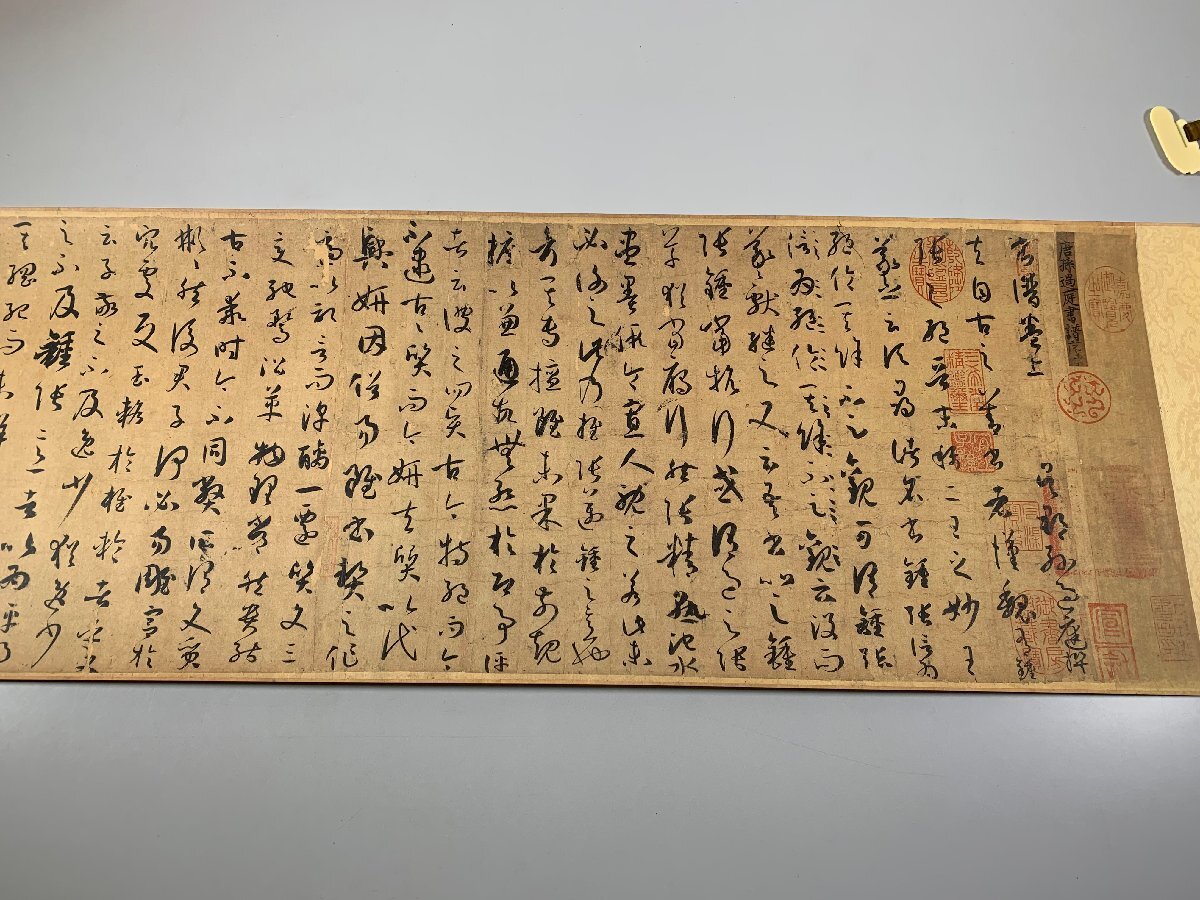 唐孫過庭書譜
書譜卷上 吳郡孫過庭撰
夫自古之善書者漢魏有鍾
張之絕晉末稱二王之妙王
羲之云頃尋諸名書鍾張信為
絕倫其餘不足觀可謂鍾張
為絕倫其餘不足觀云沒而
羲獻繼之又云吾書比之鍾
張鍾當抗行或謂過之張
草猶當雁行然張精熟池水
盡墨假令寡人耽之若此未
必謝之此乃推張邁鍾之意也
考其專擅雖未果於前規
摭以兼通故無慚於即事評
者云彼之四賢古今特絕而今
不逮古古質而今妍夫質以代
興妍因俗易雖書契之作
適以記言而淳醨一遷質文三
變馳騖沿革物理常然貴能
古不乖時今不同弊所謂文質
彬彬然後君子何必易雕宮於
穴處反玉輅於椎輪者乎又
云子敬之不及逸少猶逸少
之不及鍾張意者以為評得
其綱紀而未詳